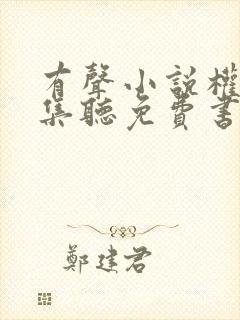 有聲小說權
集聽免費書
鄭建君